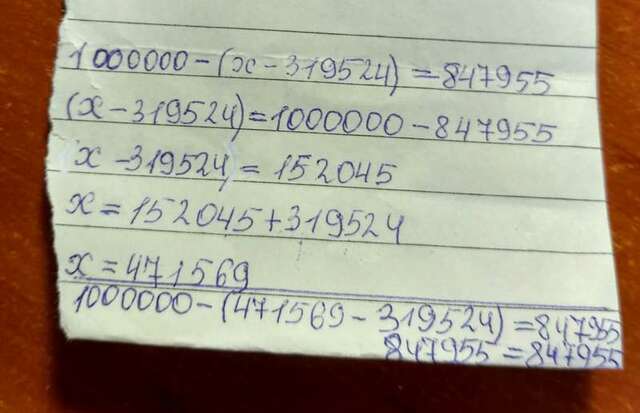 1000000-(x-319524)=847955
(x-319524)=1000000-847955
x-319524=152045
x=152045+319524
x=471569
1000000-(471569-319524)=847955
847955=847955